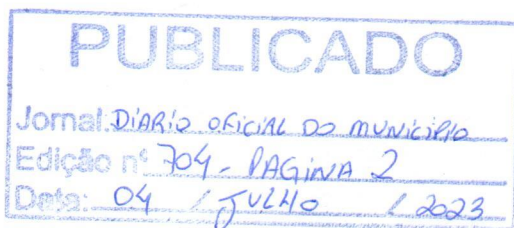 PUBLICADO
Jornal: DIARIO OFICIAL DO MUNICIPIO
Edição nº 704 - PAGINA 2
Data: 04 / JULHO / 2023